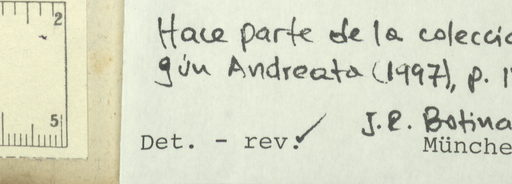 2
5
Hace parte de la colecció
gún Andreata (1997), p. 1
J.R. Botina
Det. - rev.✓
Münche